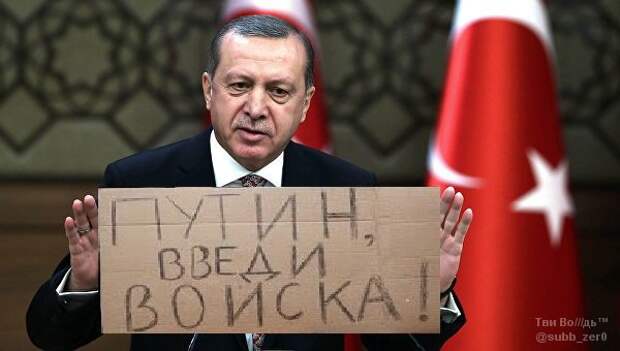 ПУТИН,
ВВЕДИ
ВОЙСКА!
Тви Во///дь™
@subb_zer0